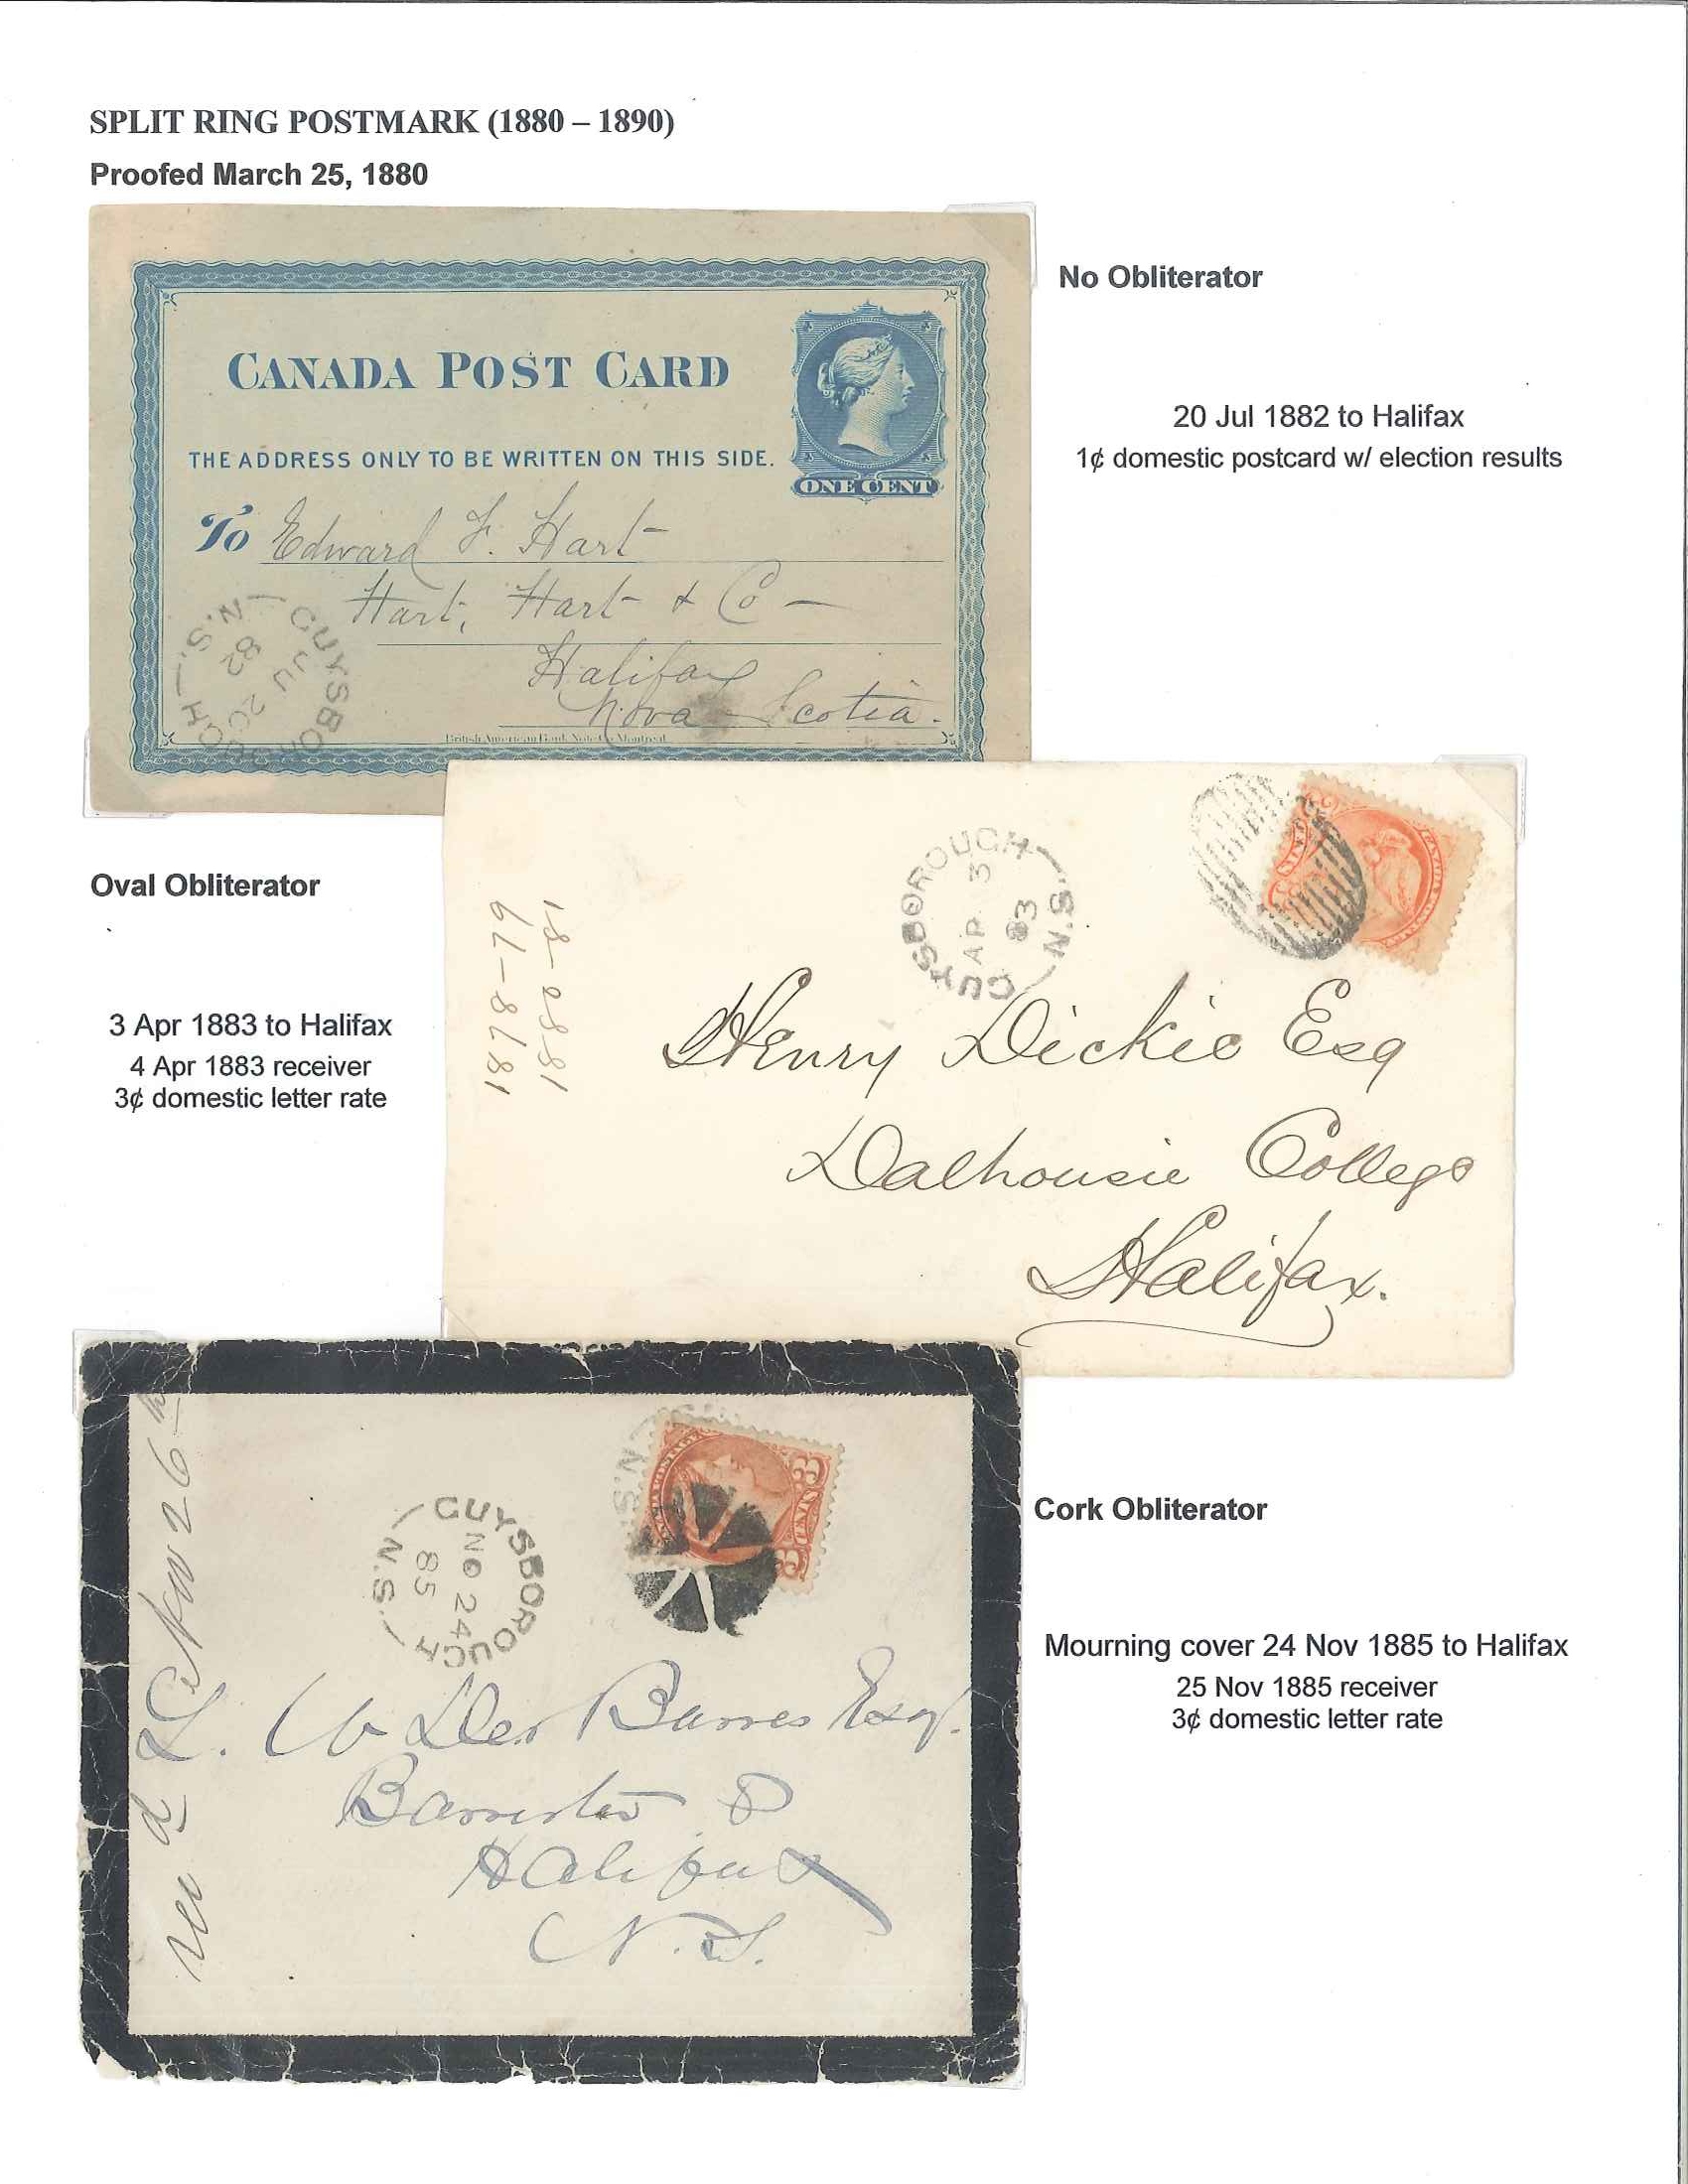 SPLIT RING POSTMARK (1880 – 1890)
Proofed March 25, 1880
No Obliterator
20 Jul 1882 to Halifax
1¢ domestic postcard w/ election results
CANADA POST CARD
THE ADDRESS ONLY TO BE WRITTEN ON THIS SIDE.
ONE CENT
To Edward F. Hart
Hart, Hart & Co –
Halifax
Nova Scotia.
British American Bank Note Co Montreal
GUYSBOROUGH
JU 20
82
N.S.
Oval Obliterator
3 Apr 1883 to Halifax
4 Apr 1883 receiver
3¢ domestic letter rate
GUYSBOROUGH
AP 3
83
N.S.
1878–79
1880–81
Henry Dickie Esq
Dalhousie College
Halifax.
Cork Obliterator
Mourning cover 24 Nov 1885 to Halifax
25 Nov 1885 receiver
3¢ domestic letter rate
N.S.
3 CENTS 3
GUYSBOROUGH
NO 24
85
N.S.
L. W Des Barres Esq.
Barrister
Halifax
N.S.
Nov 26